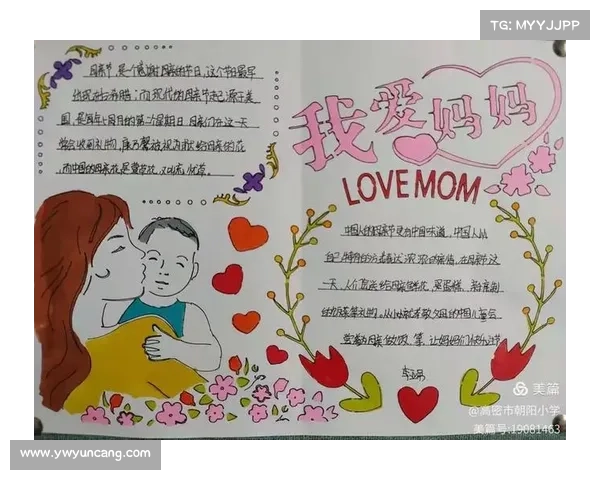 TG: MYYJJPP
母亲节,是个感谢母亲的节日,这个节日最早
出现在古希腊;而现代的母亲节起源于美
国,是每年5月的第二个星期日,母亲们在这一天
会收到礼物,康乃馨被视为献给母亲的花
,而中国的母亲花是萱草花,又叫忘忧草。
我爱妈妈
LOVE MOM
中国人的母亲节更有中国味道,中国人以
自己独特的方式表达浓浓的亲情,在母亲节这
一天,人们会送给母亲鲜花、蛋糕、
的饭菜等礼物。
会为母亲做饭、
美篇
@高密市朝阳小学
美篇号:19081463
www.ywyuncang.com